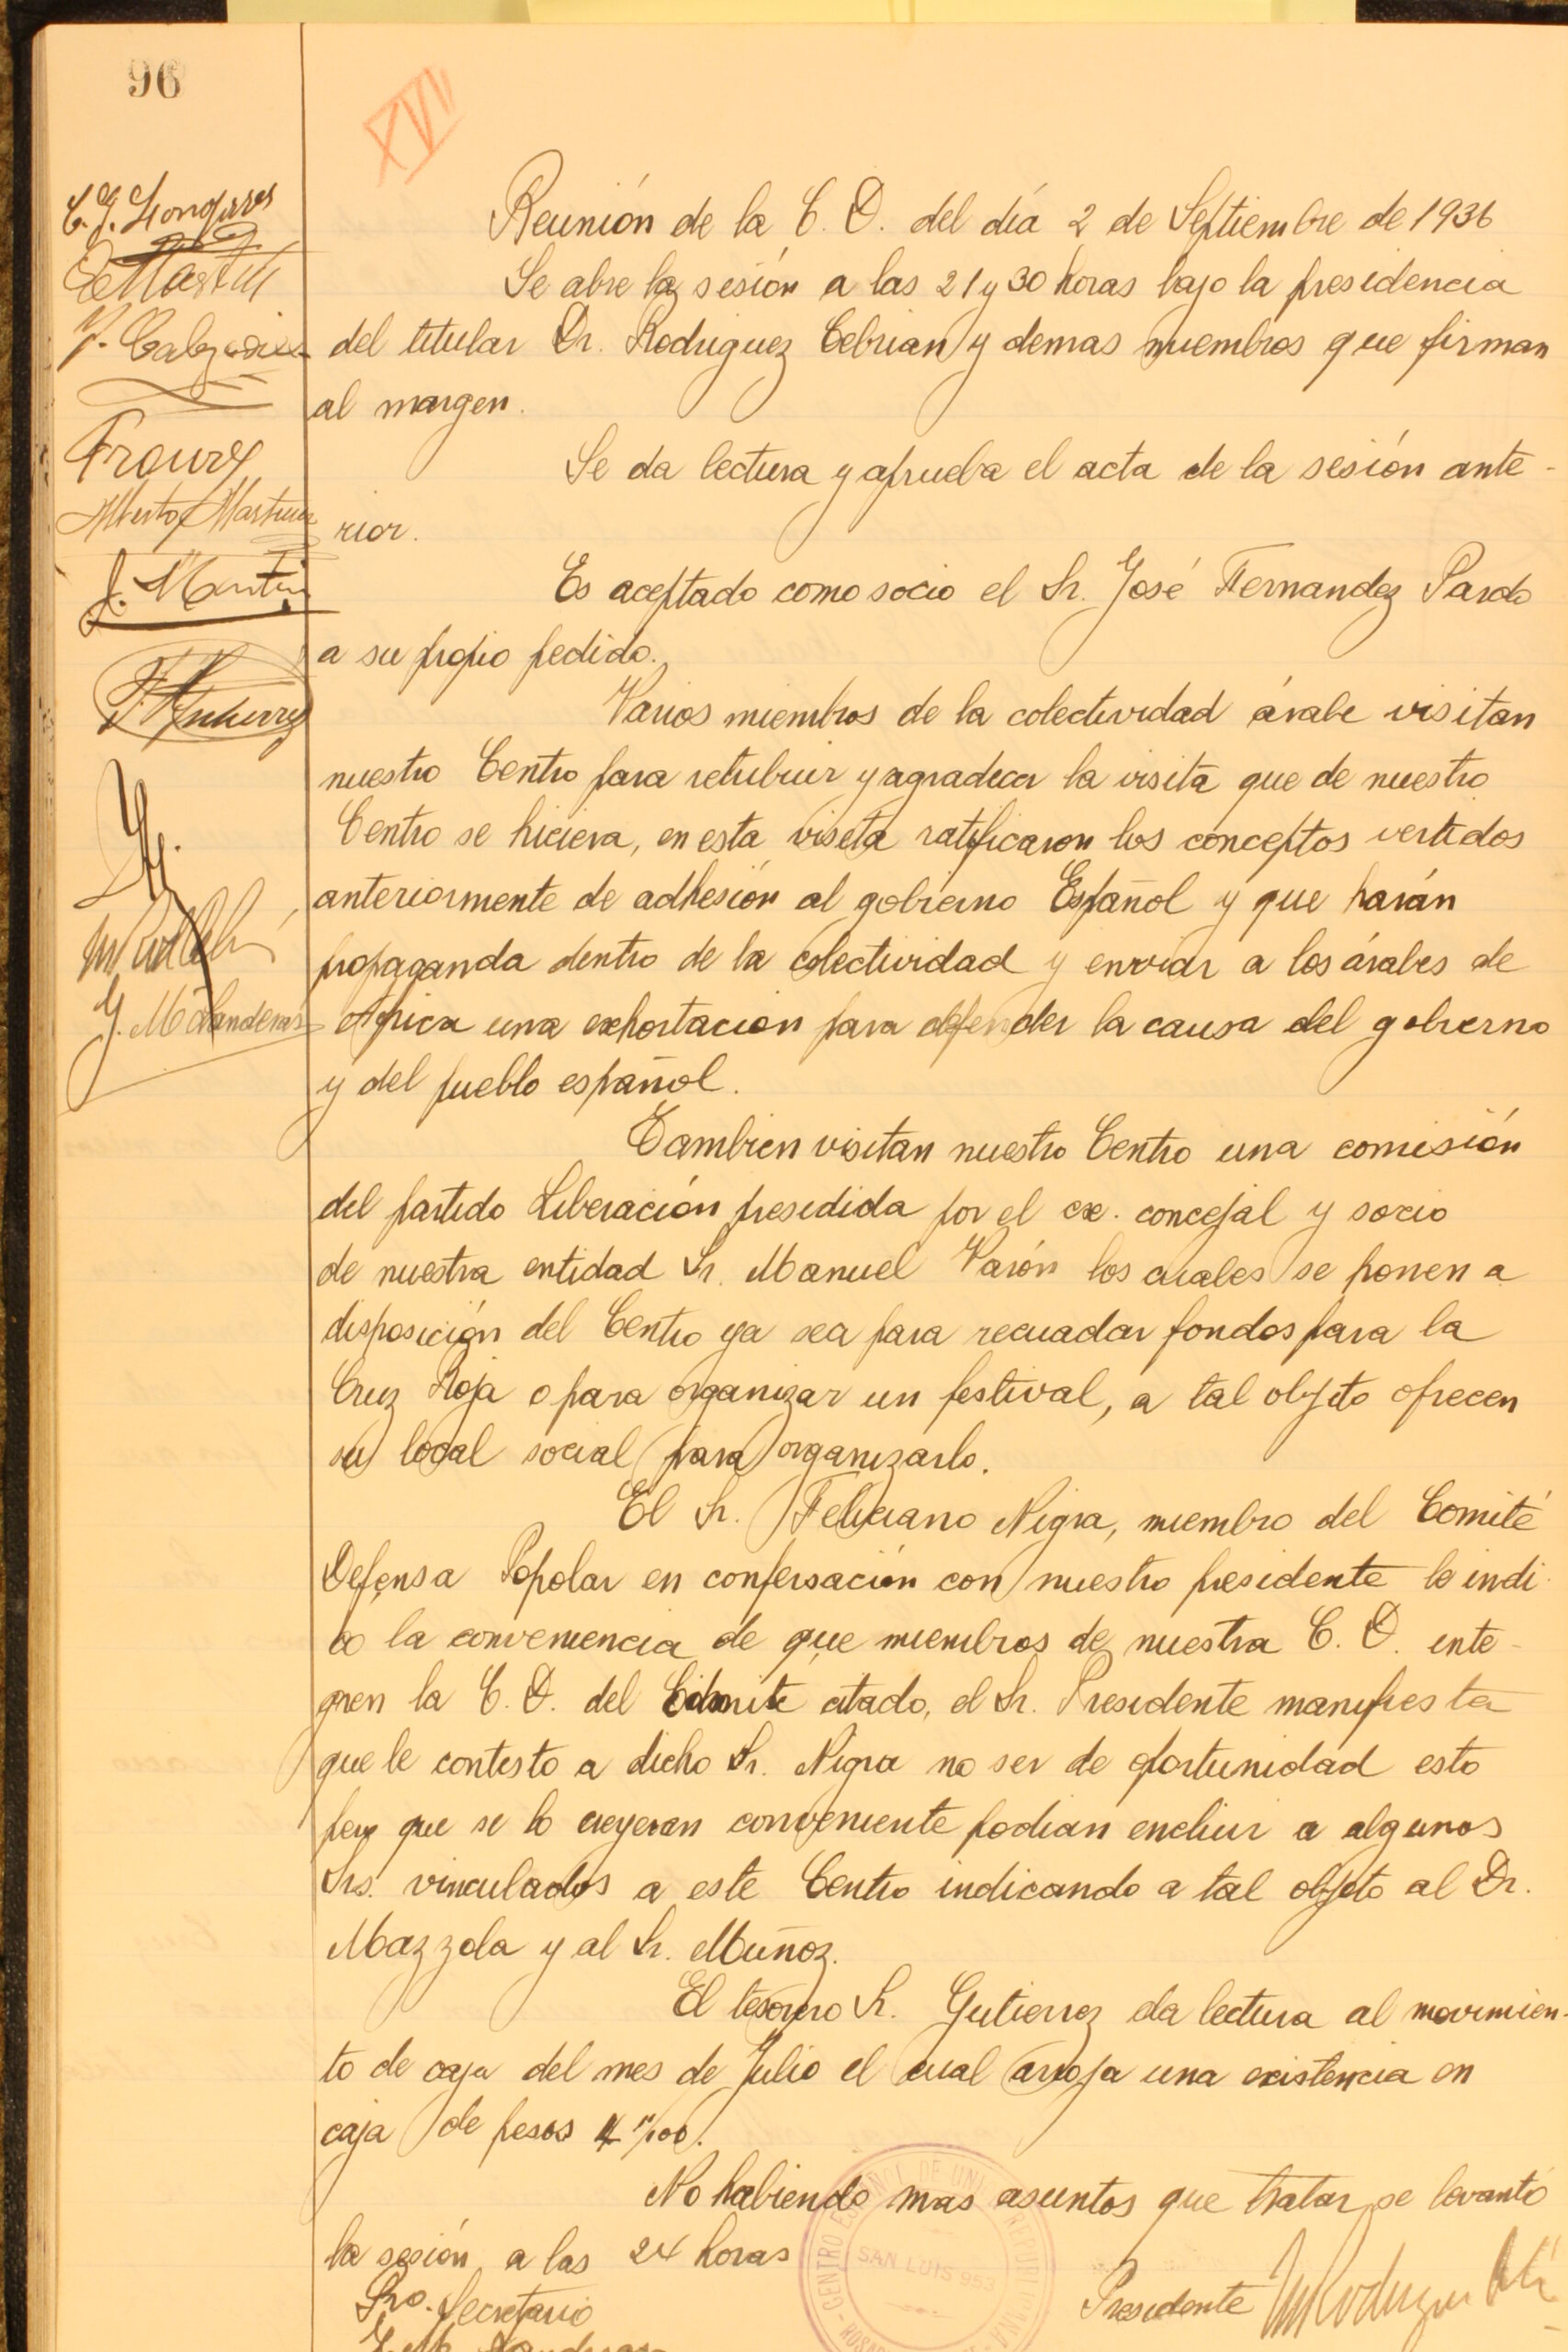 96
XVII
Reunión de la C. D. del día 2 de Septiembre de 1936
Se abre la sesión a las 21 y 30 horas bajo la presidencia
del titular Dr. Rodriguez Cebrian y demas miembros que firman
al margen.
Se da lectura y aprueba el acta de la sesión ante-
rior.
Es aceptado como socio el Sr. José Fernandez Pardo
a su propio pedido.
Varios miembros de la colectividad árabe visitan
nuestro Centro para retribuir y agradecer la visita que de nuestro
Centro se hiciera, en esta visita ratificaron los conceptos vertidos
anteriormente de adhesión al gobierno Español y que harán
propaganda dentro de la colectividad y enviar a los árabes de
Africa una exhortación para defender la causa del gobierno
y del pueblo español.
Tambien visitan nuestro Centro una comisión
del partido Liberación presidida por el ex. concejal y socio
de nuestra entidad Sr. Manuel Varón los cuales se ponen a
disposición del Centro ya sea para recuadar fondos para la
Cruz Roja o para organizar un festival, a tal objeto ofrecen
su local social para organizarlo.
El Sr. Feliciano Nigra, miembro del Comité
Defensa Popolar en confersación con nuestro presidente le indi-
co la conveniencia de que miembros de nuestra C. D. inte-
gren la C. D. del Comité citado, el Sr. Presidente manifiesta
que le contesto a dicho Sr. Nigra no ser de oportunidad esto
pero que si lo creyeran conveniente podian incluir a algunos
Srs. vinculados a este Centro indicando a tal objeto al Dr.
Mazzola y al Sr. Muñoz.
El tesorero Sr. Gutierrez da lectura al movimien-
to de caja del mes de Julio el cual arroja una existencia en
caja de pesos
No habiendo mas asuntos que tratar se levantó
la sesión a las 24 horas
Pro. Secretario
Presidente
Alberto Martinez
J. Martin
CENTRO ESPAÑOL DE UNION REPUBLICANA
SAN LUIS 953